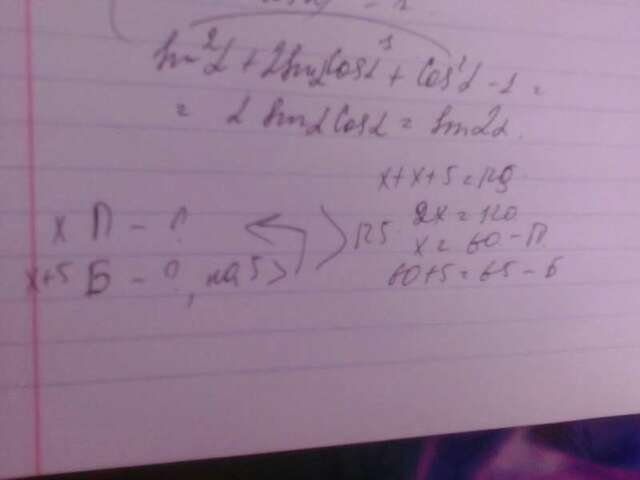 sin²α + 2sinαcosα + cos²α - 1 =
= 2 sinα cosα = sin2α.
x П - ?
x+5 Б - ?, на 5 >
125
x + x + 5 = 125
2x = 120
x = 60 - П
60 + 5 = 65 - Б